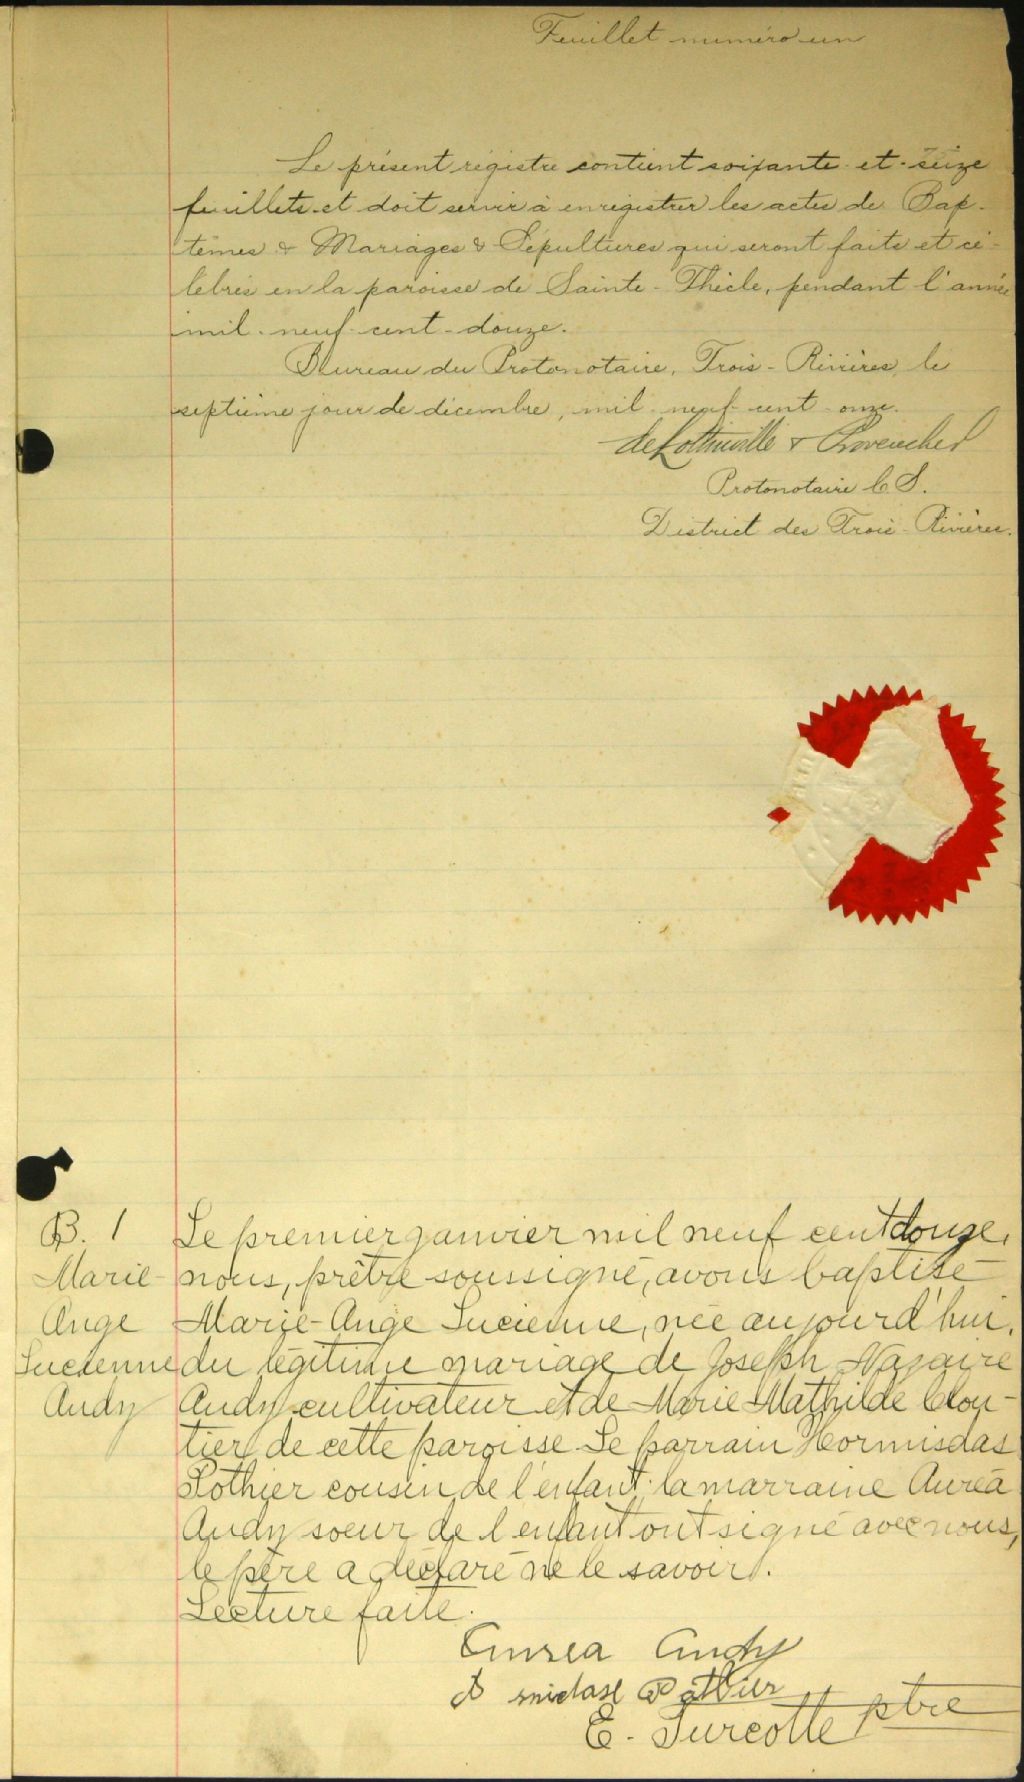 Feuillet numéro un
Le présent régistre contient soixante-et-seize
feuillets et doit servir à enregistrer les actes de Bap-
têmes & Mariages & Sépultures qui seront faits et cé-
lébrés en la paroisse de Sainte-Thècle, pendant l'année
mil-neuf-cent-douze.
Bureau du Protonotaire, Trois-Rivières, le
septième jour de décembre, mil-neuf-cent-onze.
deLottinville & Provencher
Protonotaire C. S.
District des Trois-Rivières.
B. 1
Marie-
Ange
Lucienne
Audy
Le premier janvier mil neuf cent douze,
nous, prêtre soussigné, avons baptisé
Marie-Ange Lucienne, née aujourd'hui,
du légitime mariage de Joseph Nazaire
Audy cultivateur et de Marie Mathilde Clou-
tier de cette paroisse. Le parrain Hormisdas
Pothier cousin de l'enfant, la marraine Auréa
Audy soeur de l'enfant ont signé avec nous,
le père a déclaré ne le savoir.
Lecture faite.
Aurea Audy
Pothier
E. Turcotte ptre